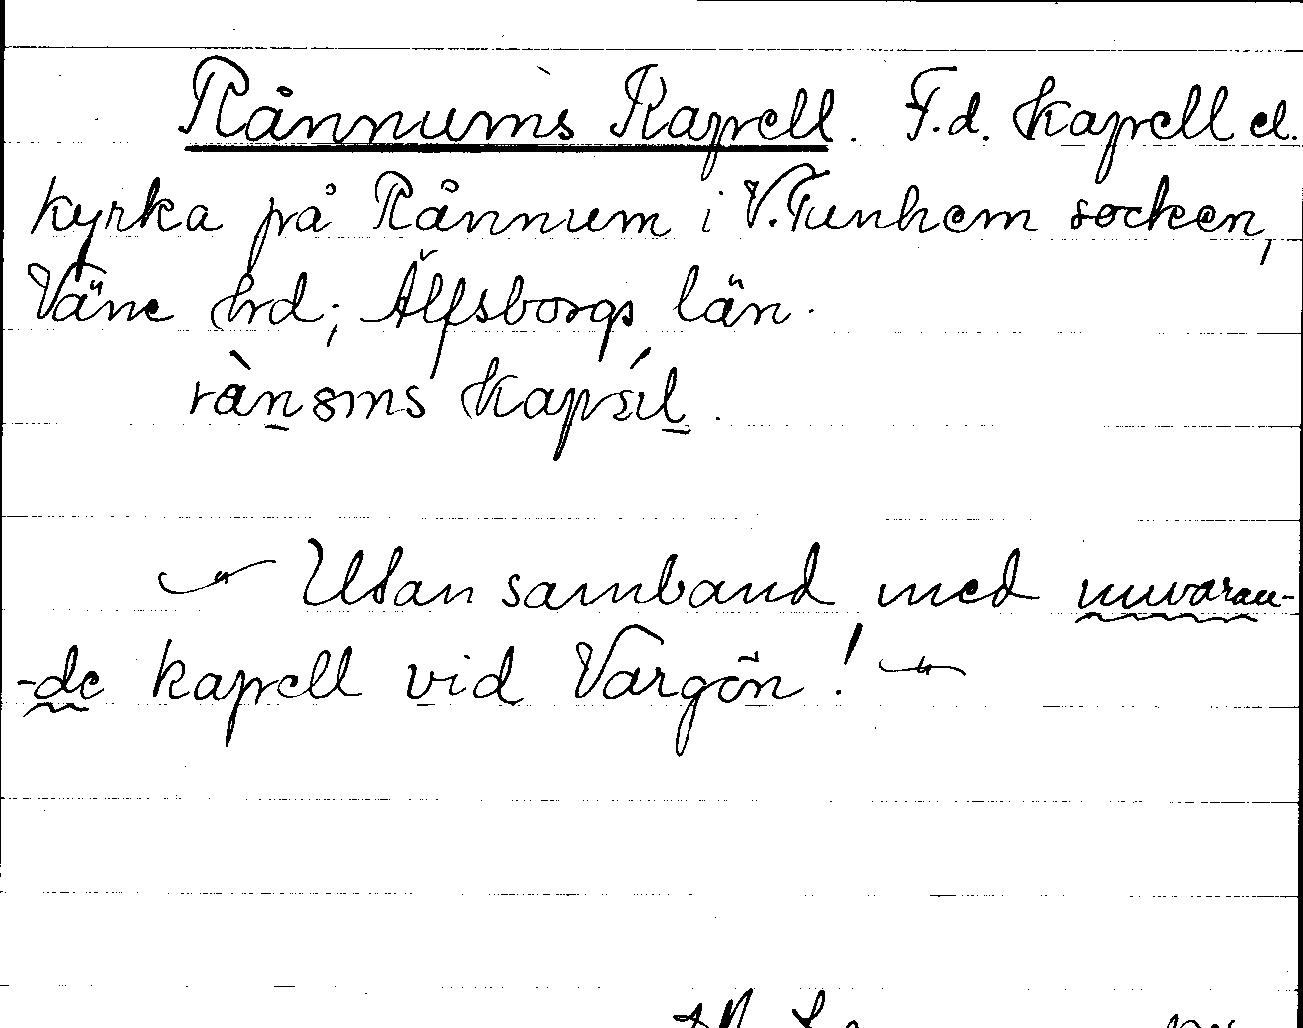 Rånnums Kapell. F.d. kapell el.
kyrka på Rånnum i V. Tunhem socken,
Väne hrd; Älfsborgs län.
Utan samband med nuvaran-
-de kapell vid Vargön!